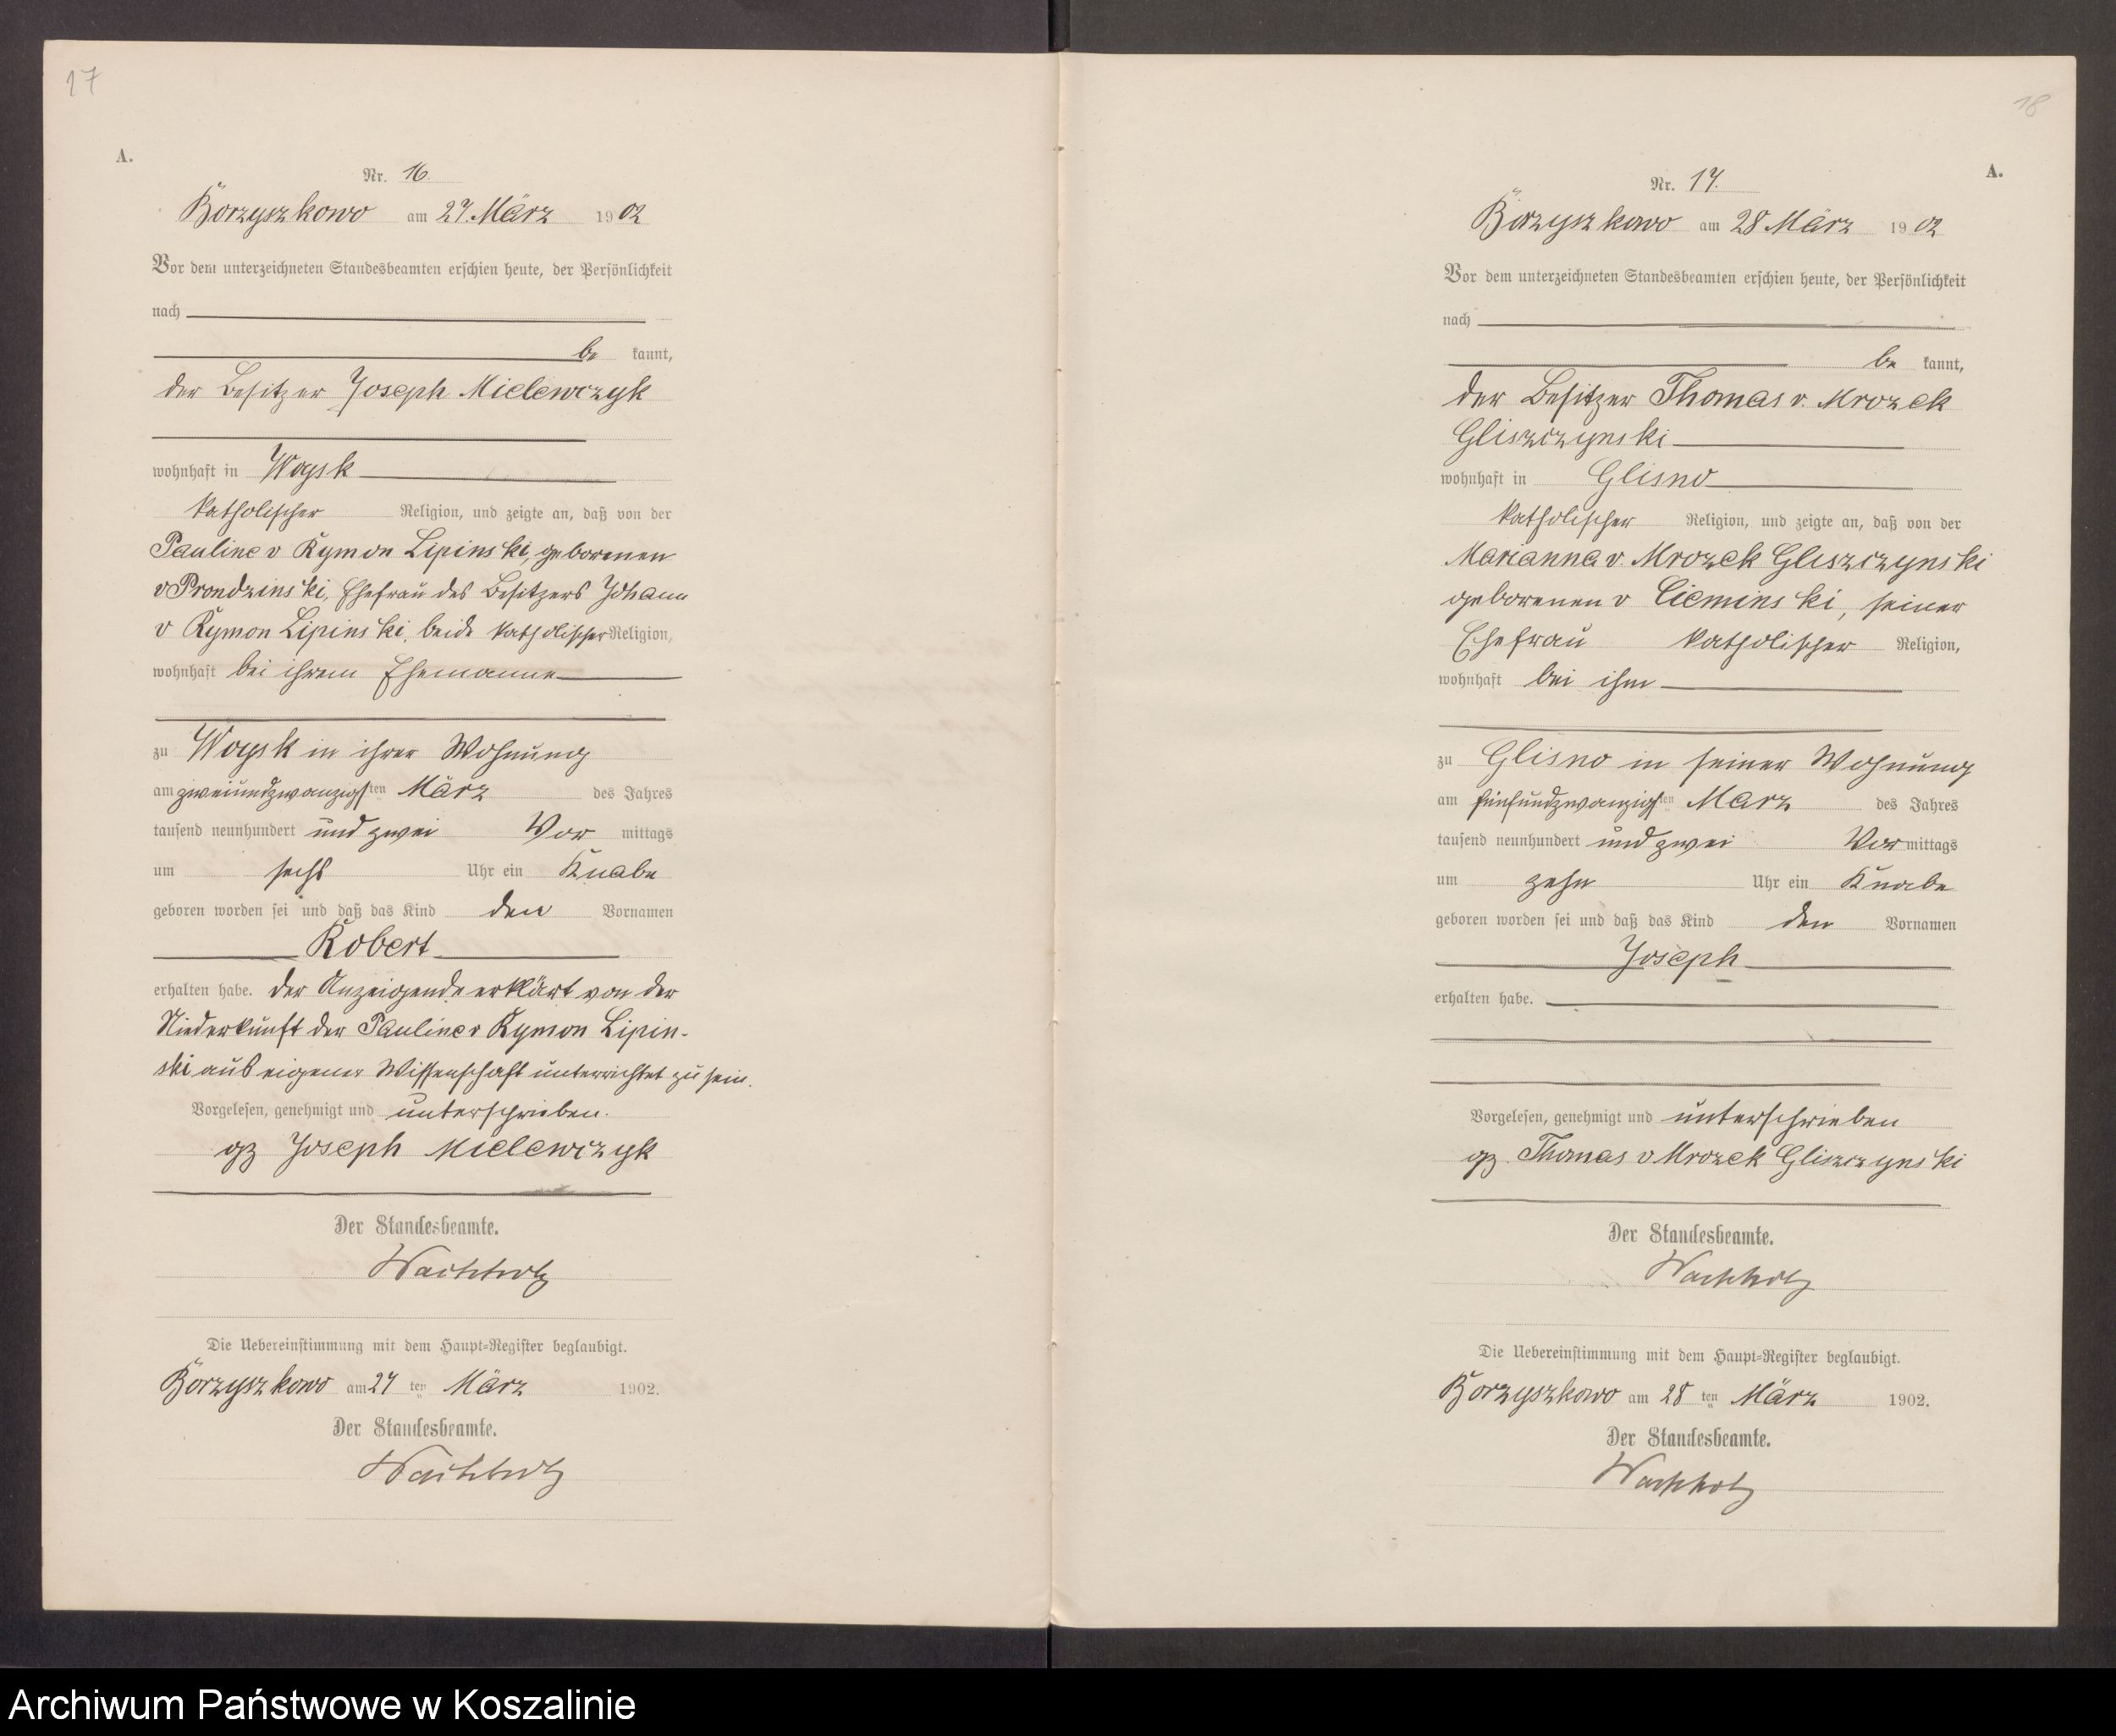 17
A.
Nr. 16.
Borzyszkowo am 27. März 1902
Vor dem unterzeichneten Standesbeamten erschien heute, der Persönlichkeit
nach
be kannt,
der Besitzer Joseph Mielewczyk
wohnhaft in Woysk
katholischer Religion, und zeigte an, daß von der
Pauline v Rymon Lipinski, geborenen
v Prondzinski, Ehefrau des Besitzers Johann
v Rymon Lipinski, beide katholischer Religion,
wohnhaft bei ihrem Ehemanne
zu Woysk in ihrer Wohnung
am zweiundzwanzigsten März des Jahres
tausend neunhundert und zwei Vor mittags
um sechs Uhr ein Knabe
geboren worden sei und daß das Kind den Vornamen
Robert
erhalten habe. Der Anzeigende erklärt von der
Niederkunft der Pauline v Rymon Lipin-
ski aus eigener Wissenschaft unterrichtet zu sein.
Vorgelesen, genehmigt und unterschrieben.
gz Joseph Mielewczyk
Der Standesbeamte.
Wachholz
Die Uebereinstimmung mit dem Haupt-Register beglaubigt.
Borzyszkowo am 27 ten März 1902.
Der Standesbeamte.
Wachholz
18
A.
Nr. 17.
Borzyszkowo am 28 März 1902
Vor dem unterzeichneten Standesbeamten erschien heute, der Persönlichkeit
nach
be kannt,
der Besitzer Thomas v. Mrozek
Gliszczynski
wohnhaft in Glisno
katholischer Religion, und zeigte an, daß von der
Marianna v. Mrozek Gliszczynski
geborenen v Cieminski, seiner
Ehefrau katholischer Religion,
wohnhaft bei ihm
zu Glisno in seiner Wohnung
am fünfundzwanzigsten März des Jahres
tausend neunhundert und zwei Vor mittags
um zehn Uhr ein Knabe
geboren worden sei und daß das Kind den Vornamen
Joseph
erhalten habe.
Vorgelesen, genehmigt und unterschrieben
gz. Thomas v Mrozek Gliszczynski
Der Standesbeamte.
Wachholz
Die Uebereinstimmung mit dem Haupt-Register beglaubigt.
Borzyszkowo am 28 ten März 1902.
Der Standesbeamte.
Wachholz
Archiwum Państwowe w Koszalinie